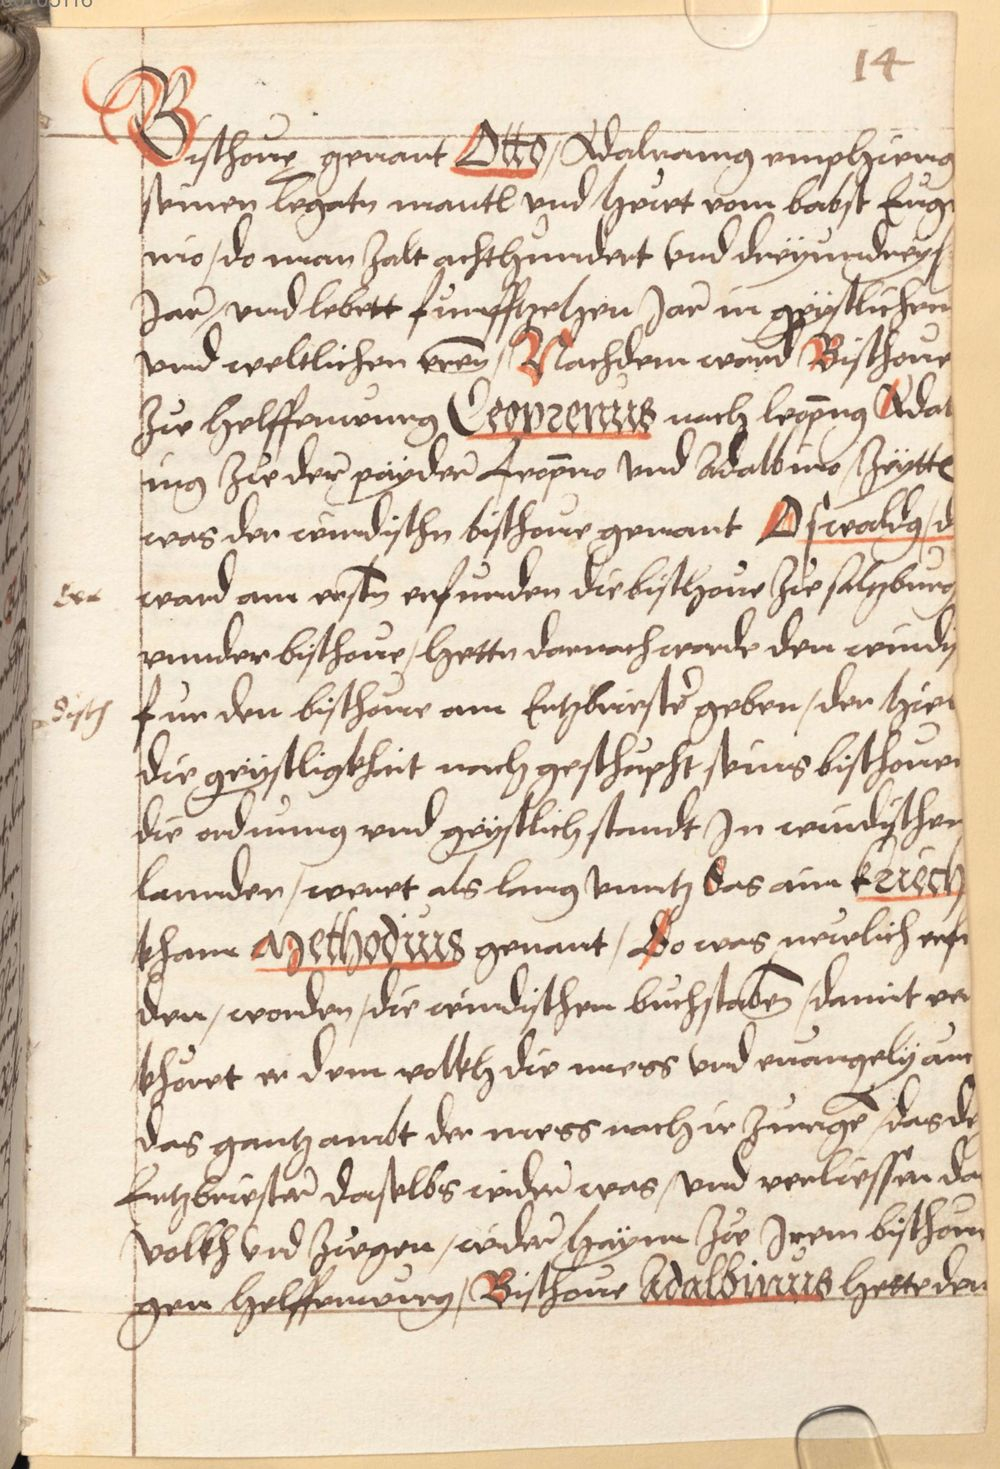 14
Bisthoue genant Otto / Adalramg emphieng
seinen legatn mantl vnd huet vom babst Euge
nio / do man zalt achthundert vnd dreyundreys
Jar / vnd lebett funffthehen Jar in geystlichen
vnd weltlichen eren / Nachdem ward Bisthoue
Zue helffenwurg Leoprenus nach leopng Adal
ing Zue der payder leopno vnd Adalbino zeytte
was der windisthn bisthoue genant Oswaldg / d
ward am erstn erfunden die bisthoue Zue saltzburg
vnnder bisthoue / hettn darnach worde den windis
fur den bisthoue am Ertzbriester geben / der hie
die geystligkhait nach gesthupht seins bisthouen
die ordnung vnd geystlich standt In windisthen
lannden / weret als lang vnntz das ain kriech
kham Methodius genant / Do was newlich erfu
den / worden / die windisthen buchstaben / damit ver
kheret er dem volkh die mess vnd euangely auc
das gantz ambt der mess nach ir zunge / das de
Ertzbriester daselbs wider was / vnd verliessen das
volkh vnd zugen / wider haym Zue Irem bisthoue
gen helffenwurg / Bisthoue Adalbinus hette den